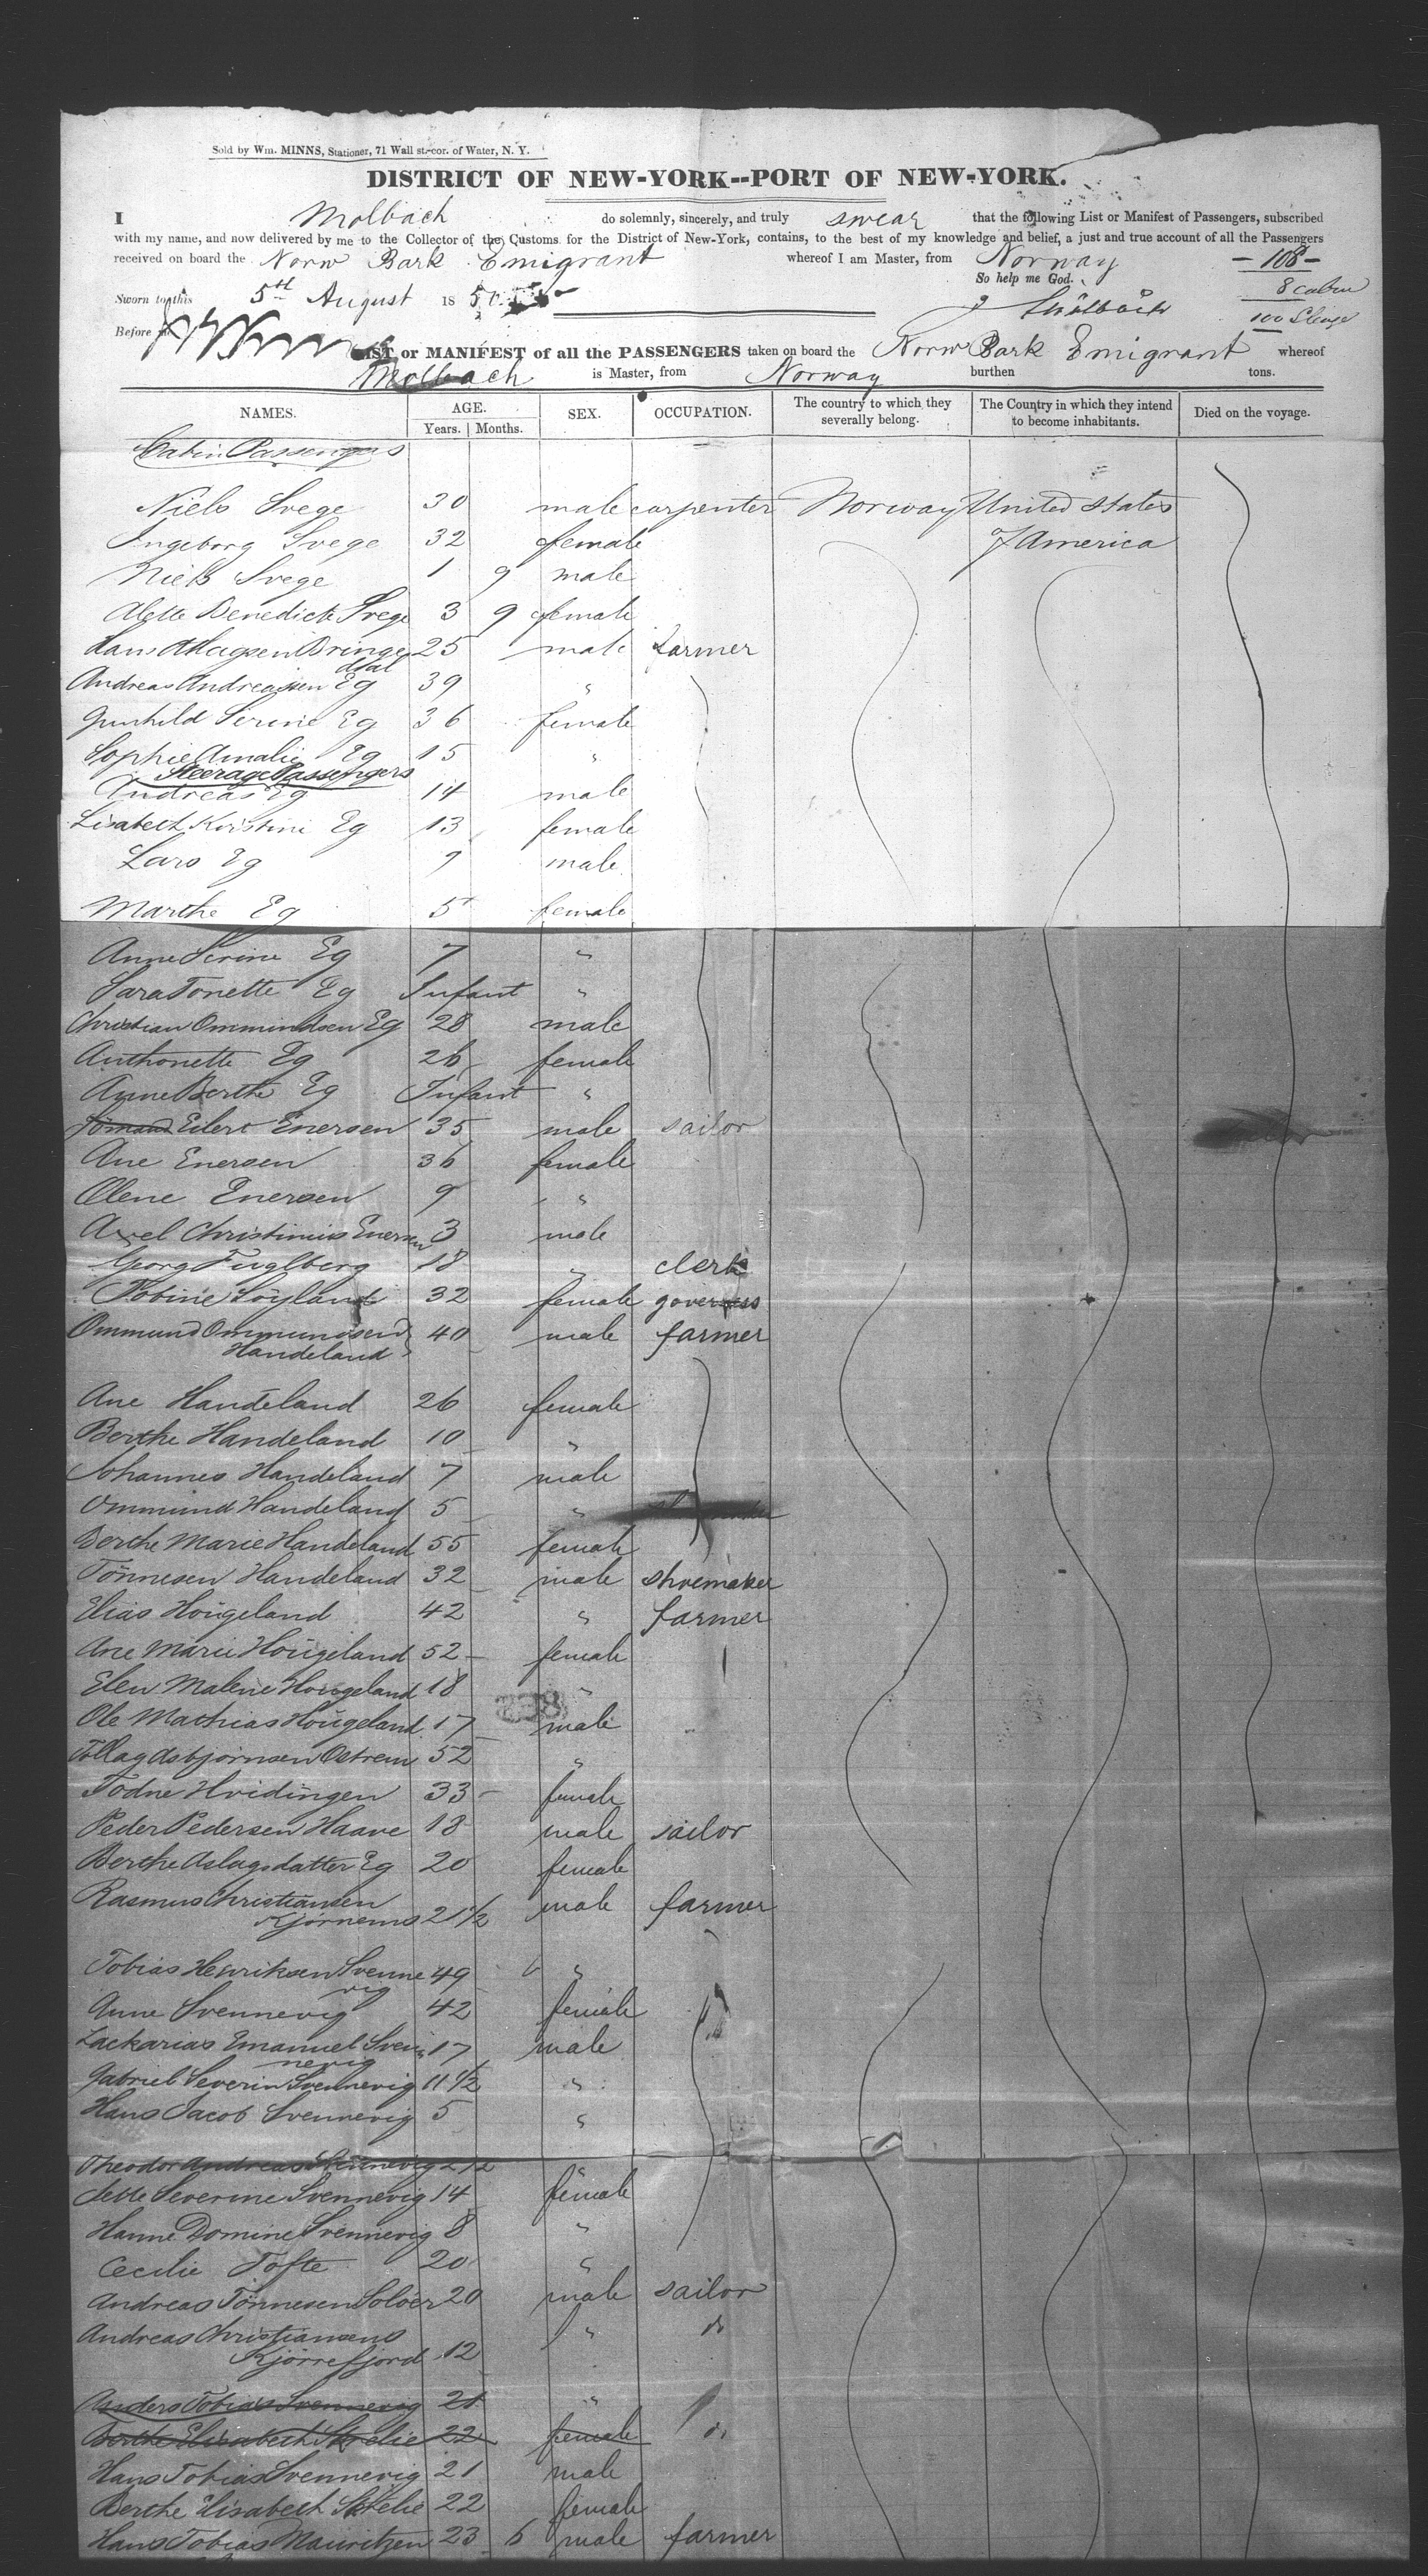 Sold by Wm. MINNS, Stationer, 71 Wall st.-cor. of Water, N. Y.
DISTRICT OF NEW-YORK--PORT OF NEW-YORK.
I Molbach do solemnly, sincerely, and truly swear that the following List or Manifest of Passengers, subscribed
with my name, and now delivered by me to the Collector of the Customs for the District of New-York, contains, to the best of my knowledge and belief, a just and true account of all the Passengers
received on board the Norw Bark Emigrant whereof I am Master, from Norway - 108 -
So help me God. 8 cabin
Sworn to this 5th August 1850
100 Steage
Before me
LIST or MANIFEST of all the PASSENGERS taken on board the Norw Bark Emigrant whereof
Molbach is Master, from Norway burthen tons.
NAMES. AGE. Years. Months. SEX. OCCUPATION. The country to which they severally belong. The Country in which they intend to become inhabitants. Died on the voyage.
Cabin Passengers
Niels Svege 30 male carpenter Norway United States
Ingeborg Svege 32 female of America
Niels Svege 1 9 male
Alette Benedicte Svege 3 9 female
Hans Bringe 25 male farmer
dsal
Andreas Andreassen Eg 39 "
Gunhild Serine Eg 36 female
Sophie Amalie Eg 15 "
Steerage Passengers
Andreas Eg 14 male
Lisabeth Kirstine Eg 13 female
Lars Eg 9 male
Marthe Eg 5 female
Anne Serine Eg 7 "
Sara Tonette Eg Infant "
Christian Ommundsen Eg 28 male
Anthonette Eg 26 female
Anne Berthe Eg Infant "
Eilert Enersen 35 male sailor
Ane Enersen 36 female
Olene Enersen 9 "
Axel Christinius Enersen 3 male
Georg Fuglberg 18 " clerk
Tobine Söyland 32 female governess
Ommund Ommundsen 40 male farmer
Handeland
Ane Handeland 26 female
Berthe Handeland 10 "
Johannes Handeland 7 male
Ommund Handeland 5 "
Berthe Marie Handeland 55 female
Tönnesen Handeland 32 male shoemaker
Elias Hougeland 42 " farmer
Ane Marie Hougeland 52 female
Elen Malene Hougeland 18 "
Ole Mathias Hougeland 17 male
Tollag Asbjörnsen Ostrem 52 "
Todne Hvidingen 33 female
Peder Pedersen Haave 18 male sailor
Berthe Aslagsdatter Eg 20 female
Rasmus Christiansen
Kjörnems 21 1/2 male farmer
Tobias Henriksen Svenne 49 "
vig
Anne Svennevig 42 female
Zackarias Emanuel Sven 17 male
nevig
Gabriel Severin Svennevig 11 1/2 "
Hans Jacob Svennevig 5 "
Theodor Andreas Svennevig 2 1/2 "
Jette Severine Svennevig 14 female
Hanne Domine Svennevig 8 "
Cecilie Tofte 20 "
Andreas Tönnesen Solöer 20 male sailor
Andreas Christiansens
Kjörrefjord 12 " do
Anders Tobias Svennevig 21 "
Berthe Elisabeth Skelie 22 female do
Hans Tobias Svennevig 21 male
Berthe Elisabeth Skelie 22 female
Hans Tobias Mauritzen 23 6 male farmer